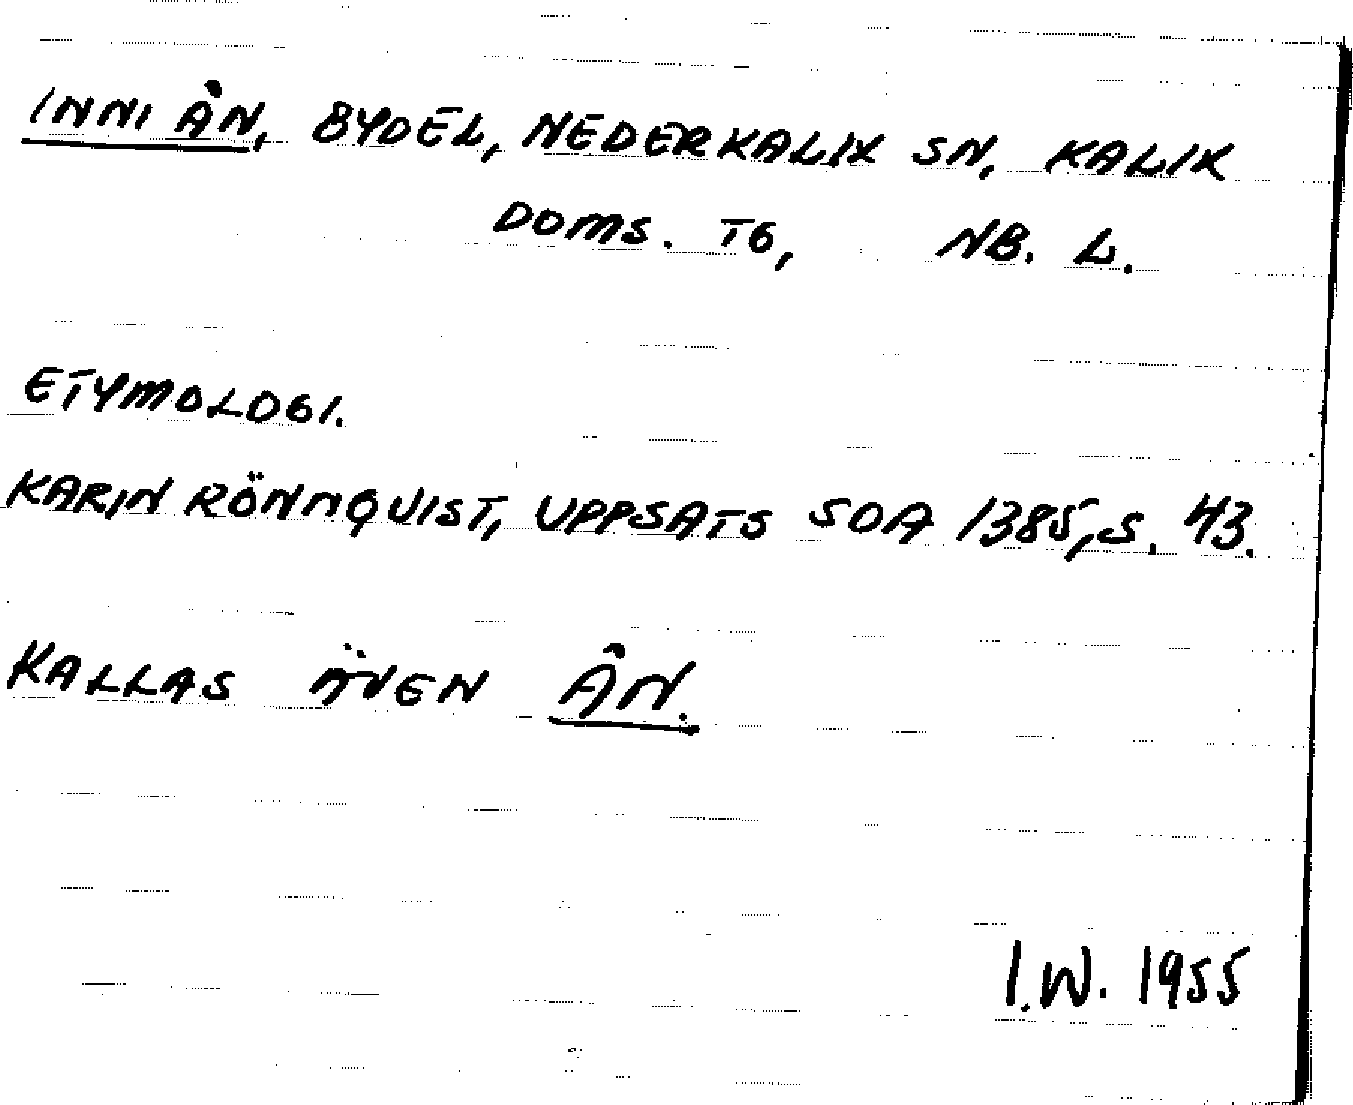 INNI ÅN, BYDEL, NEDERKALIX SN, KALIX
DOMS. TG, NB. L.
ETYMOLOGI.
KARIN RÖNNQUIST, UPPSATS SOA 1385, S. 43.
KALLAS ÄVEN ÅN.
I.W. 1955